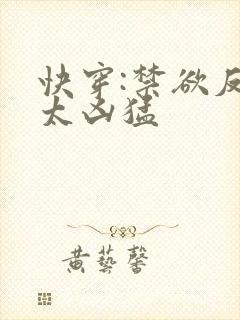 快穿:禁欲反
太凶猛
黄藝馨